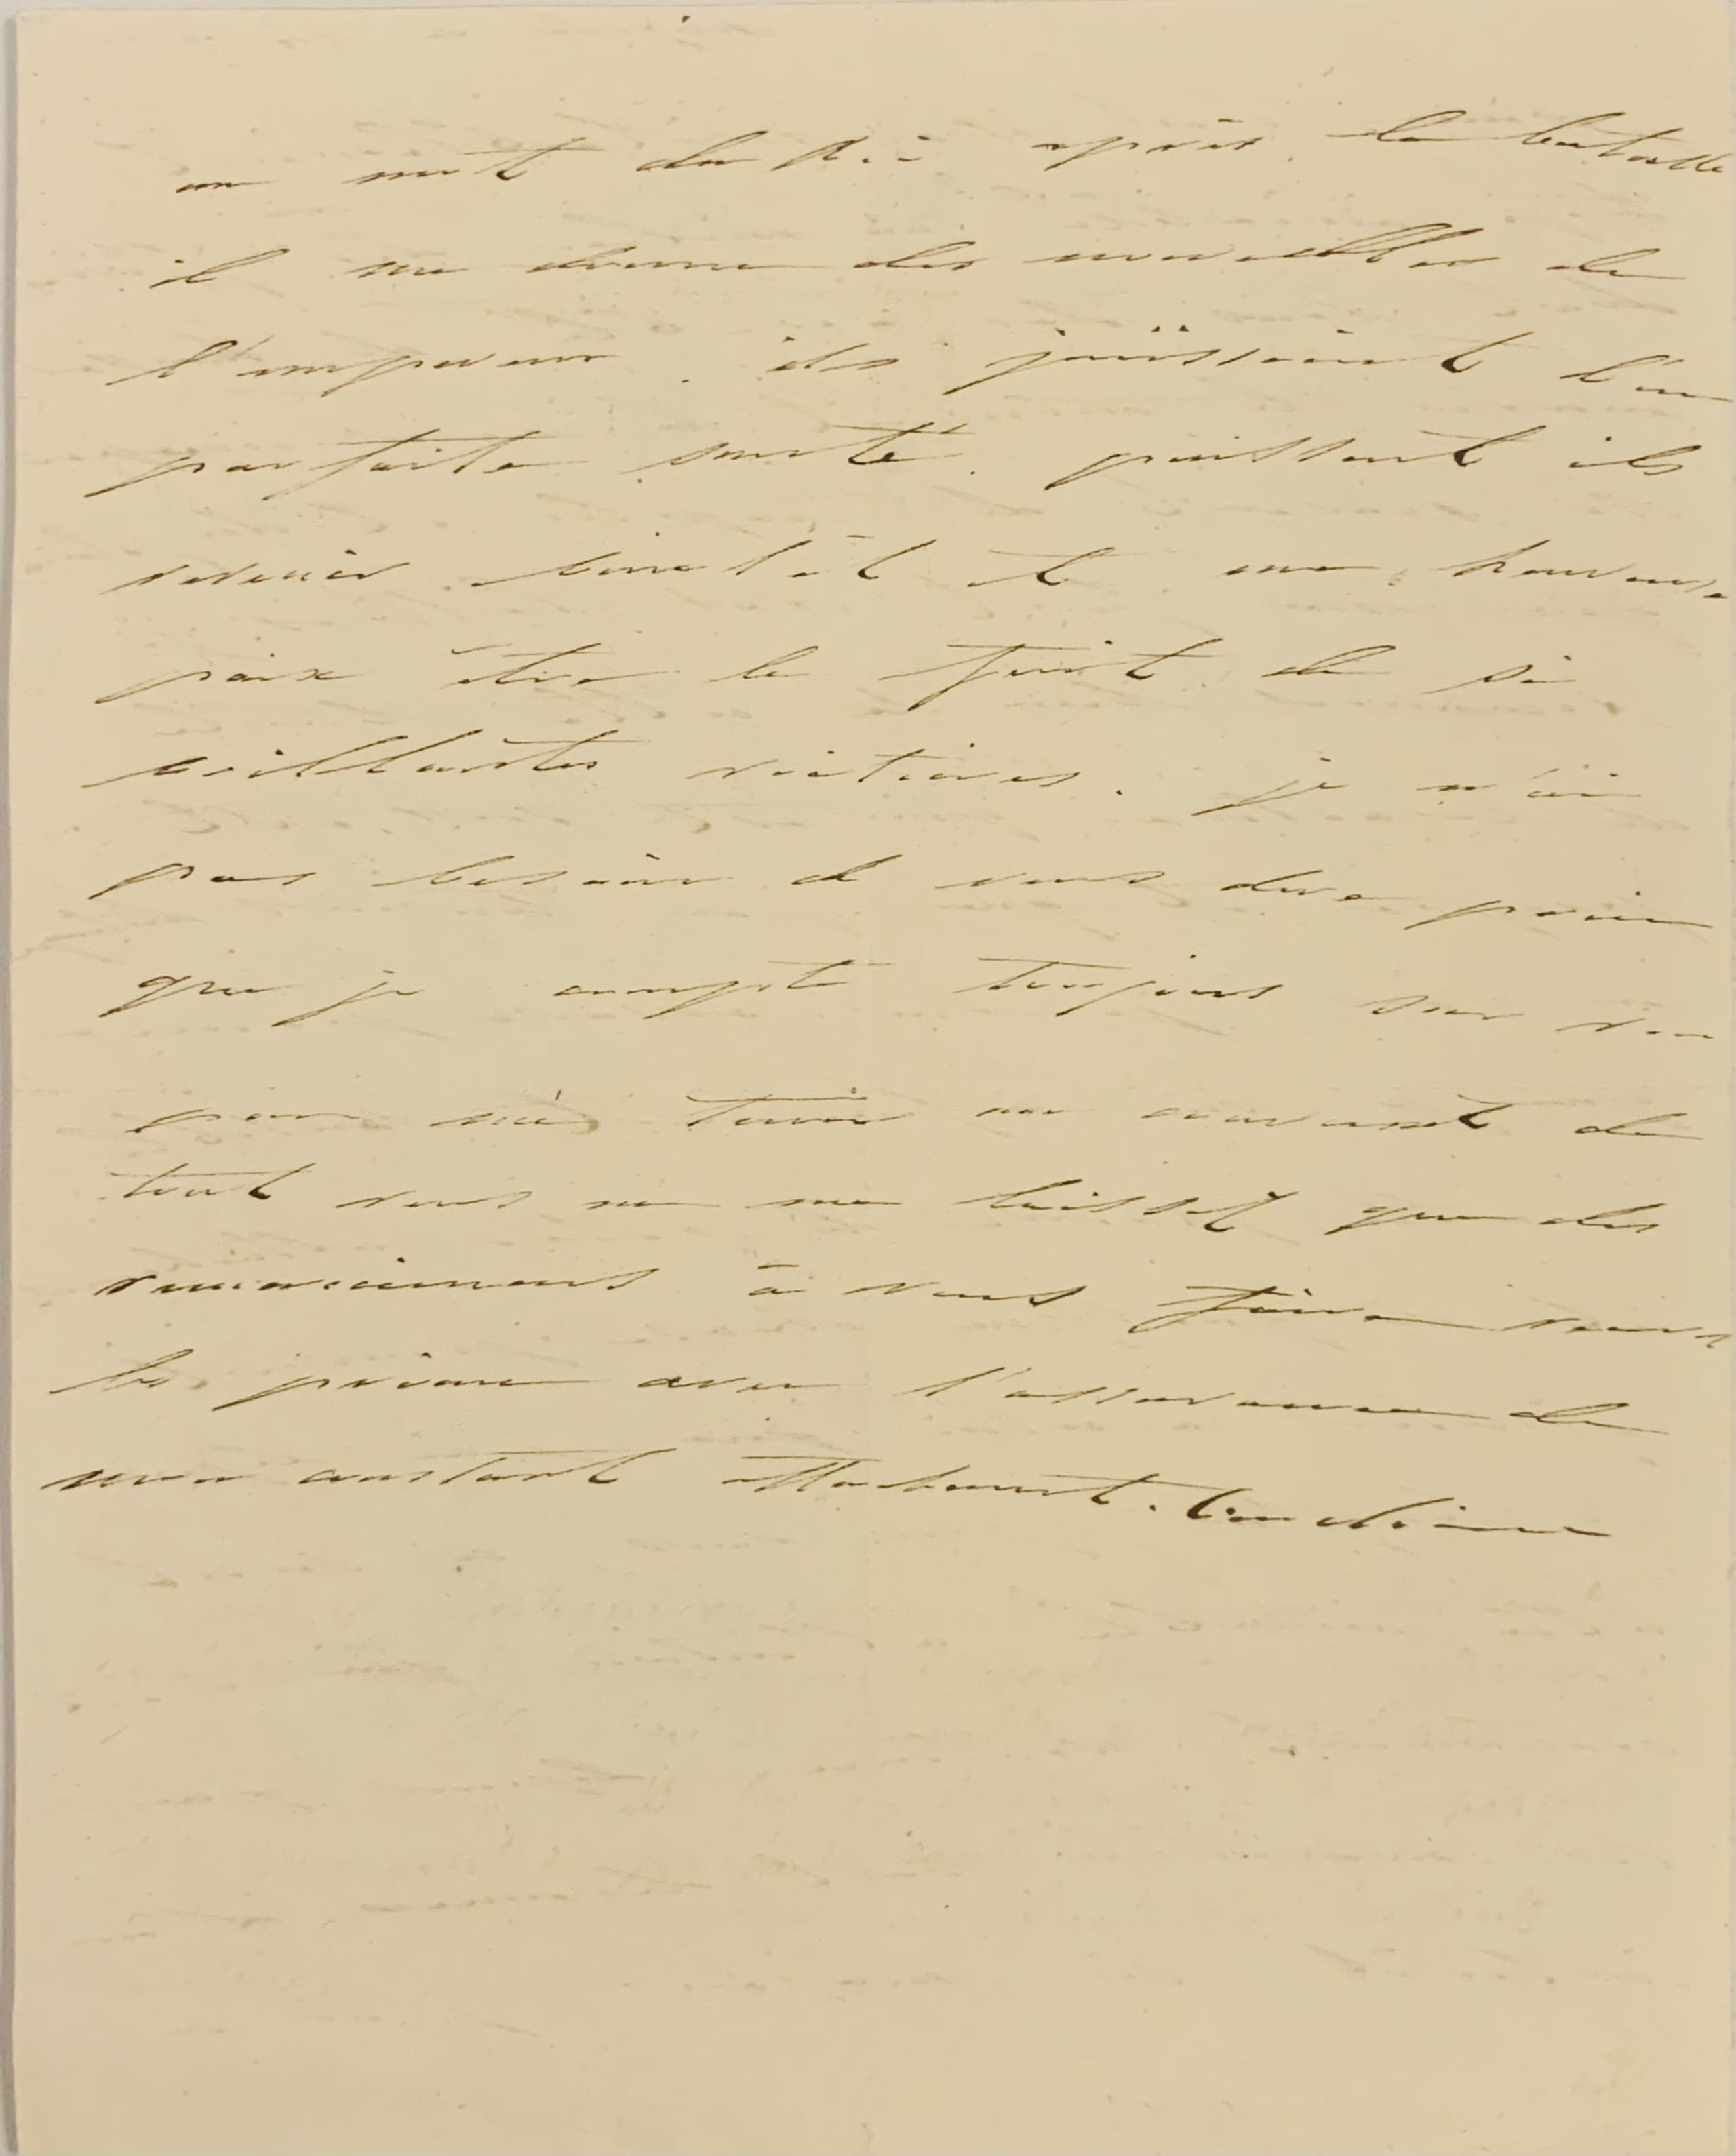 un mot du Roi après la bataille
il me donne des nouvelles de
l'empereur. ils jouissoient d'une
parfaite santé. puissent ils
revenir bientôt et une heureuse
paix être le fruit de si
brillantes victoires. je n'ai
pas besoin de vous dire prince
que je compte toujours sur vous
pour me tenir au courant de
tout vous ne me laissez que des
remerciements à vous faire
les prince avec l'assurance de
mon constant attachement.